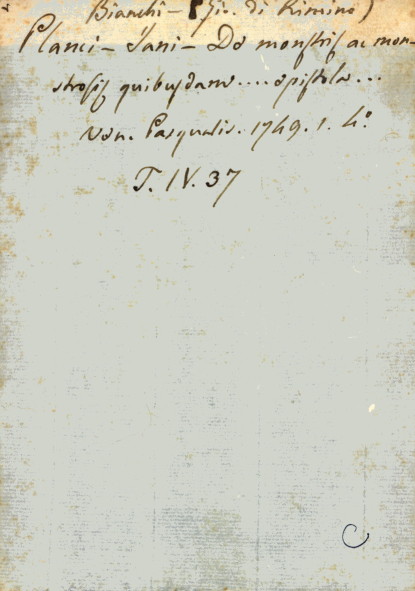 Bianchi – Gio. di Rimino)
Planci – Jani – De monstris ac mon-
strosis quibusdam.... epistola...
Ven. Pasqualis. 1749. 1. 4.º
T. IV. 37
C